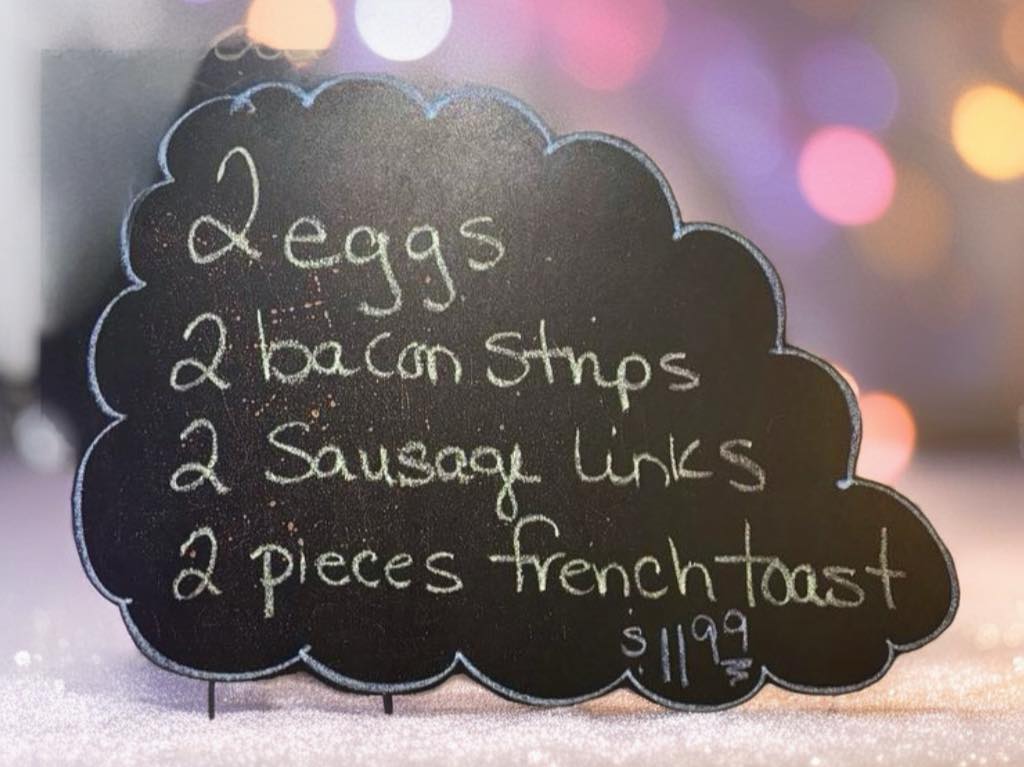 2 eggs
2 bacon strips
2 Sausage links
2 pieces french toast
$11.99